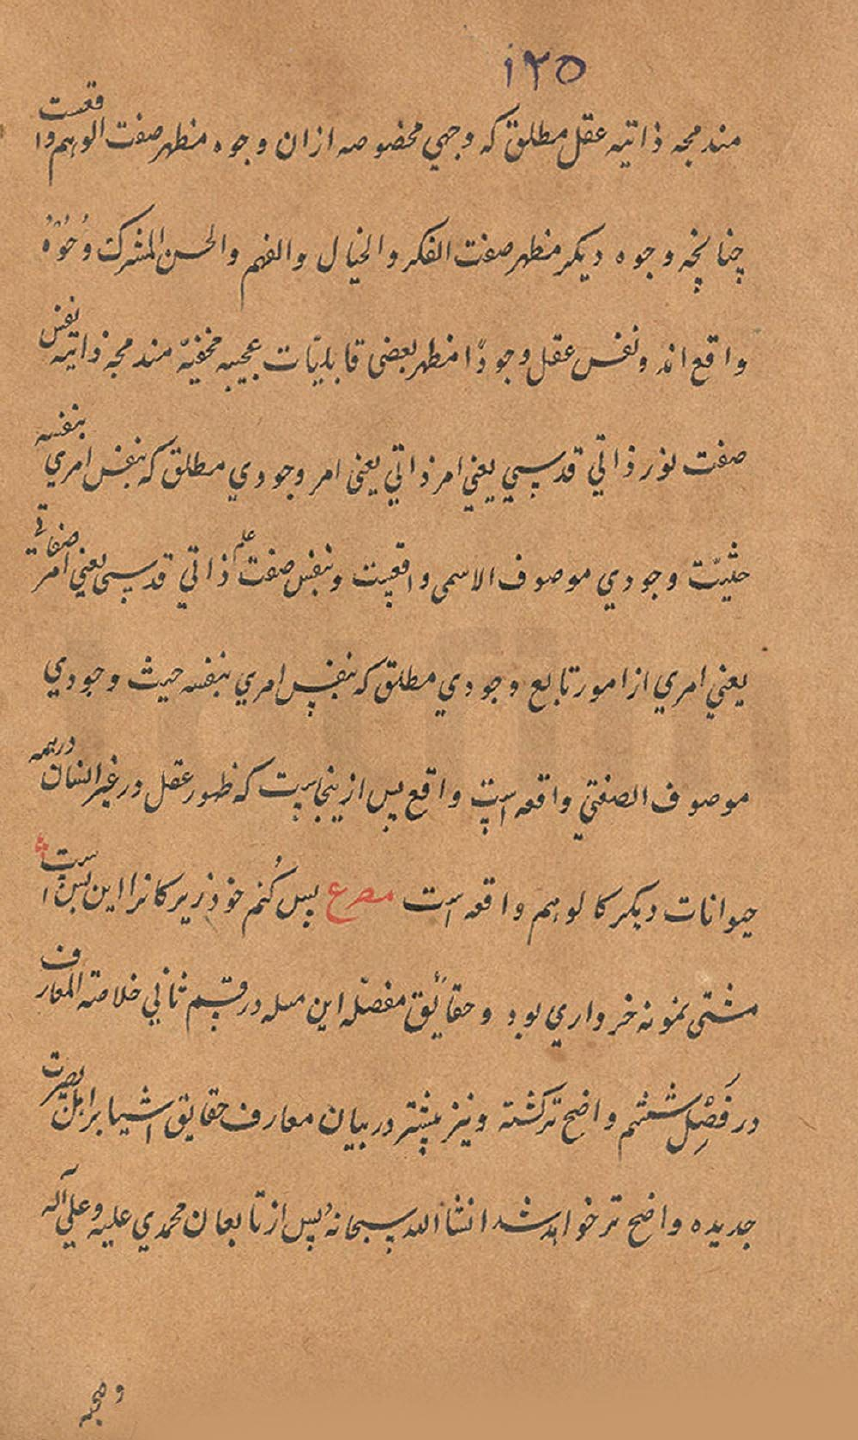 ۱۲۵
مندمجه ذاتیه عقل مطلق که وجهي مخصوصه ازان وجوه مظهر صفت الوهم واقعست
چنانچه وجوه دیکر مظهر صفت الفکر والخیال والفهم والحس المشرک ونحوه
واقع اند ونفس عقل وجودًا مظهر بعضی قابلیّات عجیبه مخفیّه مندمجه ذاتیه نفس
صفت نور ذاتي قدسي یعني امر ذاتي یعنی امر وجودي مطلق که بنفس امري بنفسه
حیثیّت وجودي موصوف الاسمی واقعست وبنفس صفت علم ذاتي قدسی یعني امر صفاتي
یعني امري از امور تابع وجودي مطلق که بنفس امري بنفسه حیث وجودي
موصوف الصفتي واقعه است واقع پس ازینجاست که ظهور عقل در غیر انسان در همه
حیوانات دیکر کالوهم واقعه است مصرع پس کُنم خود زیرکانرا این بس است
مشتی نمونه خرواري بود وحقائق مفصّله این مسله در قسم ثاني خلاصة المعارف
در فَصْلِ ششم واضح ترکشته ونیز بیشتر در بیان معارف حقایق اشیا بر اهل بصیرت
جدیده واضح تر خواهد شد انشاالله سبحانهُ پس از تابعان محمدي علیه وعلي آله
وصحبه